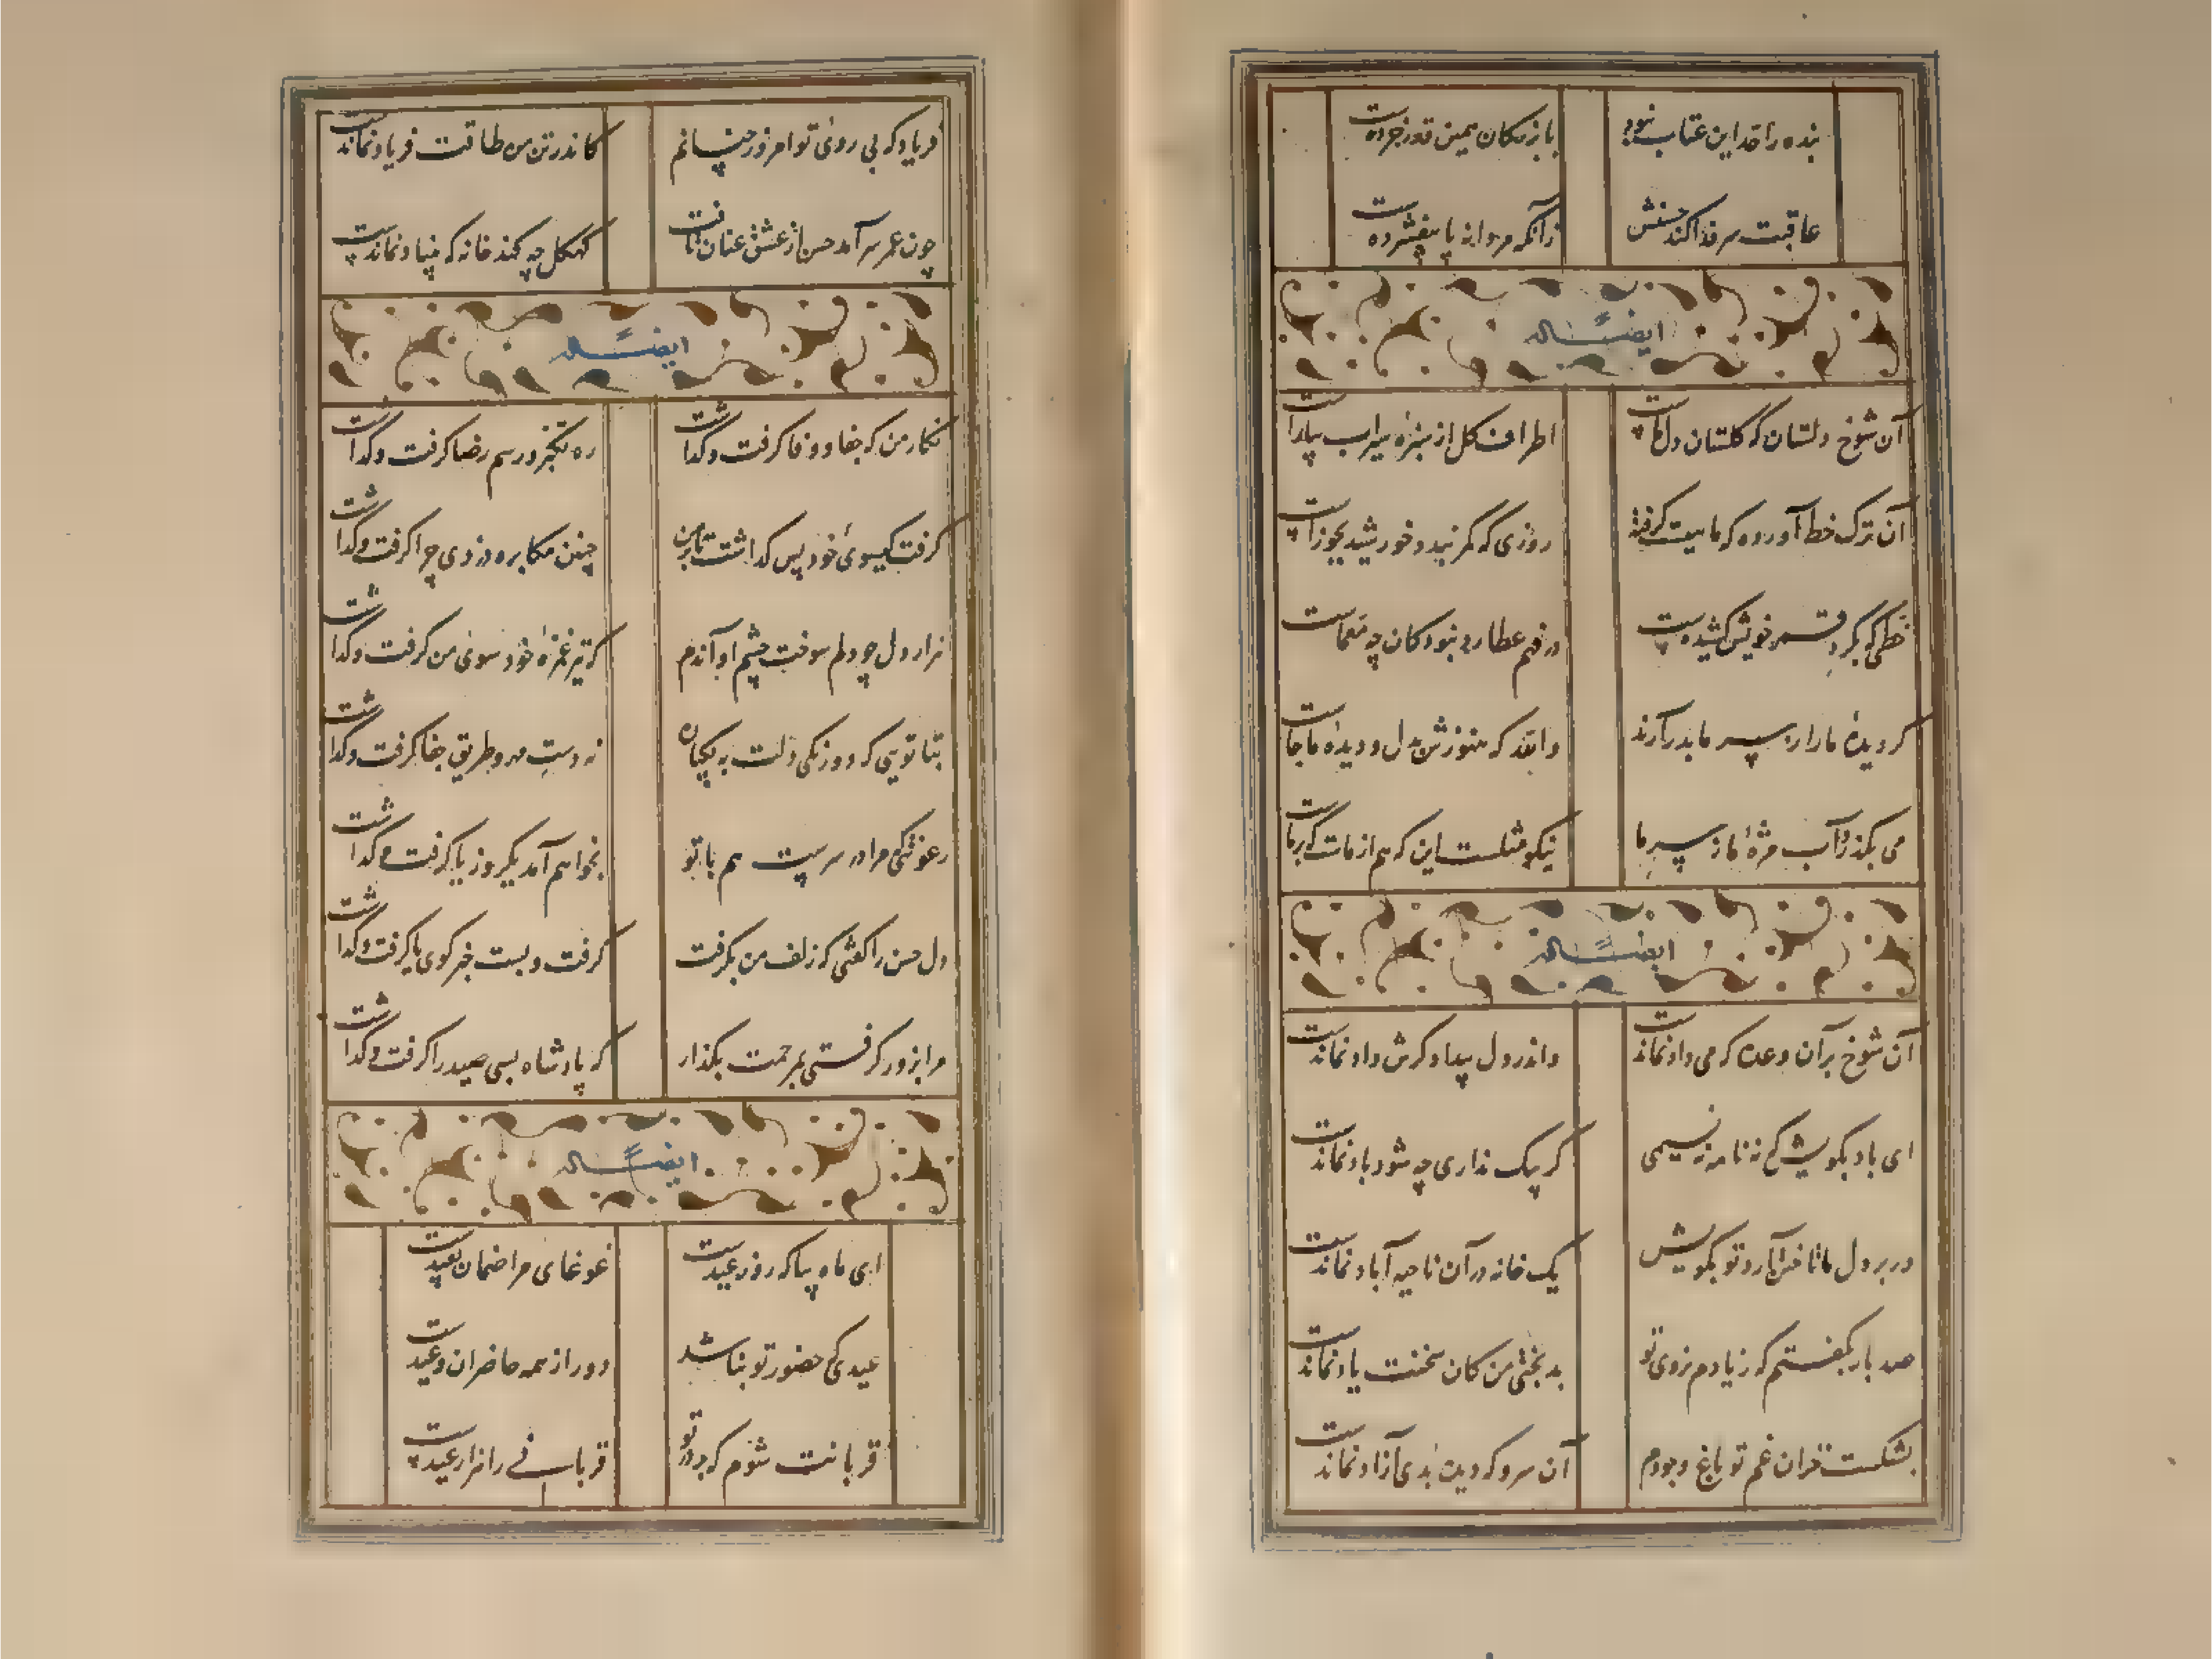 بنده را حد این عتاب نبود
باز مکان همین قدر خرده‌ست
عاقبت سر فدا کند حسنش
زانکه مردانه پا بیفشرده‌ست
ایضاً له
آن شوخ دلستان که گلستان دل ماست
اطراف گل از سبزه سیراب بیاراست
آن ترک خط آورده که ماهیت گرفته
روزی که کمر بندد خورشید بجوزاست
خطی که بگرد قمر خویش کشیده‌ست
در فهم عطارد نبود کان چه معماست
گر دیده ما را ز سر ما بدر آرند
والله که هنوزش بدل و دیده ما جاست
می بگذرد آب مژه ما ز سر ما
نیکو مثلست این که هم از ماست که بر ماست
ایضاً له
آن شوخ بر آن وعده که می داد نماندست
واندر دل بیدادگرش داد نماندست
ای باد بگویش که نه نامه نه نسیمی
گر پیک نداری چه شود باد نماندست
در بر دل ما تا ختن آرد تو بگویش
یک خانه در آن ناحیه آباد نماندست
صد بار بگفتم که ز یادم نروی تو
بدبختی من کان سخنت یاد نماندست
بشکست خزان غم تو باغ وجودم
آن سرو که دیدی آزاد نماندست
فریاد که بی روی تو امروز چنانم
کاندر تن من طاقت فریاد نماندست
چون عمر سر آمد حسن از عشق عنان تافت
کهگل چه کند خانه که بنیاد نماندست
ایضاً له
نگار من که جفا و وفا گرفت و گذاشت
ره تکبر و رسم رضا گرفت و گذاشت
گرفت گیسوی خود پس گذاشت تا بر من
چنین مکابره دزدی چرا گرفت و گذاشت
هزار دل چو دلم سوخت چشم او آندم
که تیر غمزه خود سوی من گرفت و گذاشت
بتا تویی که دو زنگی دلت به یکجا
نه دست مهر و طریق جفا گرفت و گذاشت
رعونتی که مرا در سرست هم با تو
بخواهم آمد یکروز پا گرفت و گذاشت
دل حسن را گفتی که زلف من بگرفت
گرفت و بست خبر گوی یا گرفت و گذاشت
مرا بزور گرفتی بمرحمت بگذار
که پادشاه بسی صید را گرفت و گذاشت
ایضاً له
ای ماه بیا که روز عیدست
غوغای مرا ضمان بعیدست
عیدی که حضور تو نباشد
دور از همه حاضران وعیدست
قربانت شوم که بر در تو
قربانی را هزار عیدست